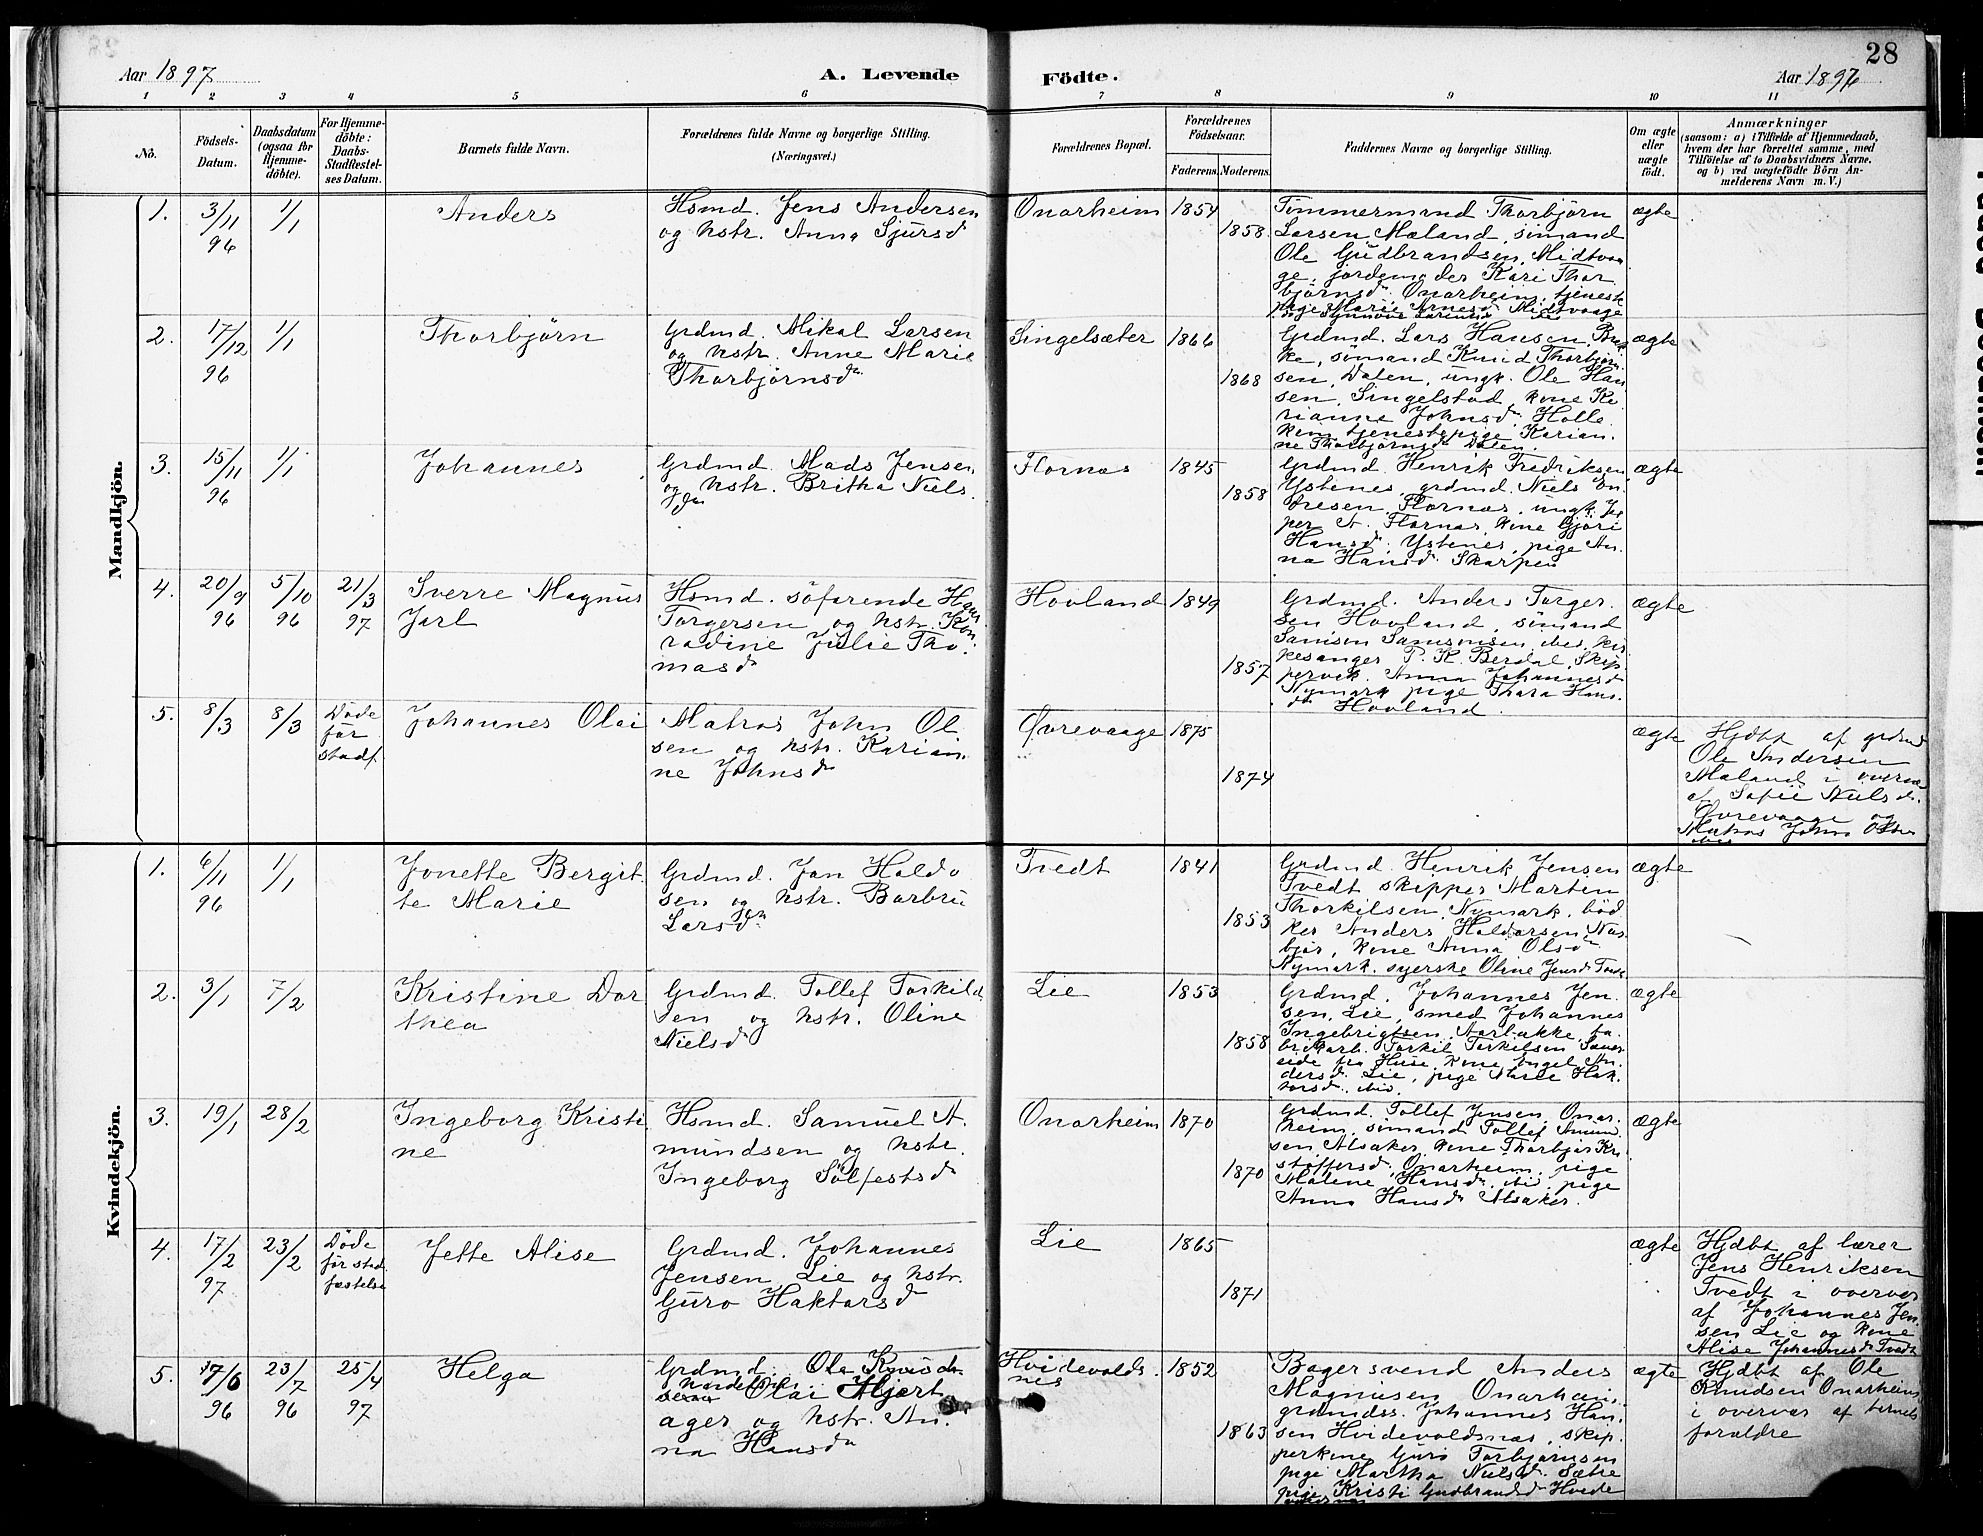 28
Aar 1897
A. Levende
Födte.
Aar 1897
1 2 3 4 5 6 7 8 9 10 11
No.
Födsels-
Datum.
Daabsdatum
(ogsaa for
Hjemme-
döbte).
For Hjemme-
döbte:
Daabs-
Stadfæstel-
ses Datum.
Barnets fulde Navn.
Forældrenes fulde Navne og borgerlige Stilling.
(Næringsvei.)
Forældrenes Bopæl.
Forældrenes
Födselsaar.
Faderens.
Moderens.
Faddernes Navne og borgerlige Stilling.
Om ægte
eller
uægte
födt.
Anmærkninger
(saasom: a) i Tilfælde af Hjemmedaab,
hvem der har forrettet samme, med
Tilföielse af to Daabsvidners Navne,
og b) ved uægtefödte Börn An-
melderens Navn m. V.)
Mandkjön.
1.
3/11
96
1/1
Anders
Hsmd. Jens Andersen
og hstr. Anna Sjursd
Onarheim
1854
1858
Tömmermand Thorbjörn
Larsen Mæland, sömand
Ole Gudbrandsen, Midtvaa
ge, jordemoder Kari Thor
björnsdr Onarheim, tjeneste
pige Marie Arnesd Midtvaage
ægte
2.
17/12
96
1/1
Thorbjörn
Grdmd. Mikal Larsen
og hstr. Anne Marie
Thorbjörnsdr
Singelsæter
1866
1868
Grdmd. Lars Hansen
ke, sömand Knud Thorbjörn
sen, Dalen, ungk. Ole Han
sen, Singelstad, kone Ke
rianne Johnsd. Holle
kim, tjenestepige Karian.
ne Thorbjörnsd Dalen
ægte
3.
15/11
96
1/1
Johannes
Grdmd. Mads Jensen
og hstr. Britha Niels
dr
Flornæs
1845
1858
Grdmd. Henrik Fredriksen
Ystenes, grdmd. Niels En
dresen, Flornæs, ungk. Je
per A. Flornæs, kone Gjöri
Hansd. Ystenes, pige An
na Hansd. Skarpen
ægte
4.
20/9
96
5/10
96
21/3
97
Sverre Magnus
Jarl
Hsmd. söfarende Hans
Torgersen og hstr. Kon
radine Julie Tho
masd
Hovland
1849
1857
Grdmd. Anders Torger
sen Hovland, sömand
Samson Samsonsen, ibid, kir
kesanger P. K. Berdal, Skip
pervik. Anna Johannesd
Nymark, pige Thora Hans
dr Hovland.
ægte
5.
8/3
8/3
Döde
för
stadf.
Johannes Olai
Matros John Ol
sen og hstr. Karian
ne Johnsdr
Øvrevaage
1875
1874
ægte
Hjdbt af grdmd
Ole Andersen
Mæland i overvær
af Sofie Nielsdr.
Øvrevaage og
Matros John Olsen
ibid
Kvindekjön.
1.
6/11
96
1/1
Jonette Bergit
te Marie
Grdmd. Jan Haldo
sen og hstr. Barbru
Larsdr
Tvedt
1841
1853
Grdmd. Henrik Jensen
Tvedt skipper Marten
Thorkilsen, Nymark, böd
ker Anders Haldorsen Næs
björ, kone Anna Olsdr
Nymark, syerske Oline Jensd Tvedt
ægte
2.
3/1
7/2
Kristine Dor
thea
Grdmd. Tollef Torkild
sen og hstr. Oline
Nielsd
Lie
1853
1858
Grdmd. Johannes Jen
sen, Lie, smed Johannes
Ingebrigtsen, Aarbakke, fa
brikarb. Torkil Torkilsen
Huse, kone Engel An
dersd. Lie, pige Marie Hak
torsd. ibid.
ægte
3.
19/1
28/2
Ingeborg Kristi
ne
Hsmd. Samuel A
mundsen og hstr.
Ingeborg Sölfestsd
Onarheim
1870
1870
Grdmd. Tollef Jensen, Onar
heim, sömand Tollef Amund
sen Alsaker, kone Thorbjör Kri
stoffersd. Onarheim, pige
Malene Hansd. ibid. pige
Anna Hansd Alsaker.
ægte
4.
17/2
97
23/2
Döde
för stad
fæstelse
Jette Alise
Grdmd. Johannes
Jensen Lie og hstr.
Guro Haktorsd
Lie
1865
1871
ægte
Hjdbt af lærer
Jens Henriksen
Tvedt i overvær
af Johannes Jen
sen Lie og kone
Alise Johannesd Tvedt
5.
17/6
96
23/7
96
25/4
97
Helga
Grdmd. Ole
Olai Hjort
ager og hstr. An.
na Hansdr
Hvidevolds
nes
1852
1863
Bagersvend Anders
Magnusen Onarheim,
grdmdss. Johannes Han
sen Hvidevoldsnæs, skip
perkone Guri Torbjörnsen
pige Martha Nielsd. Sætre
pige Kristi Gudbrandsd Hvide
ægte
Hjdbt af Ole
Knudsen Onarheim
i overvær af barnets
forældre